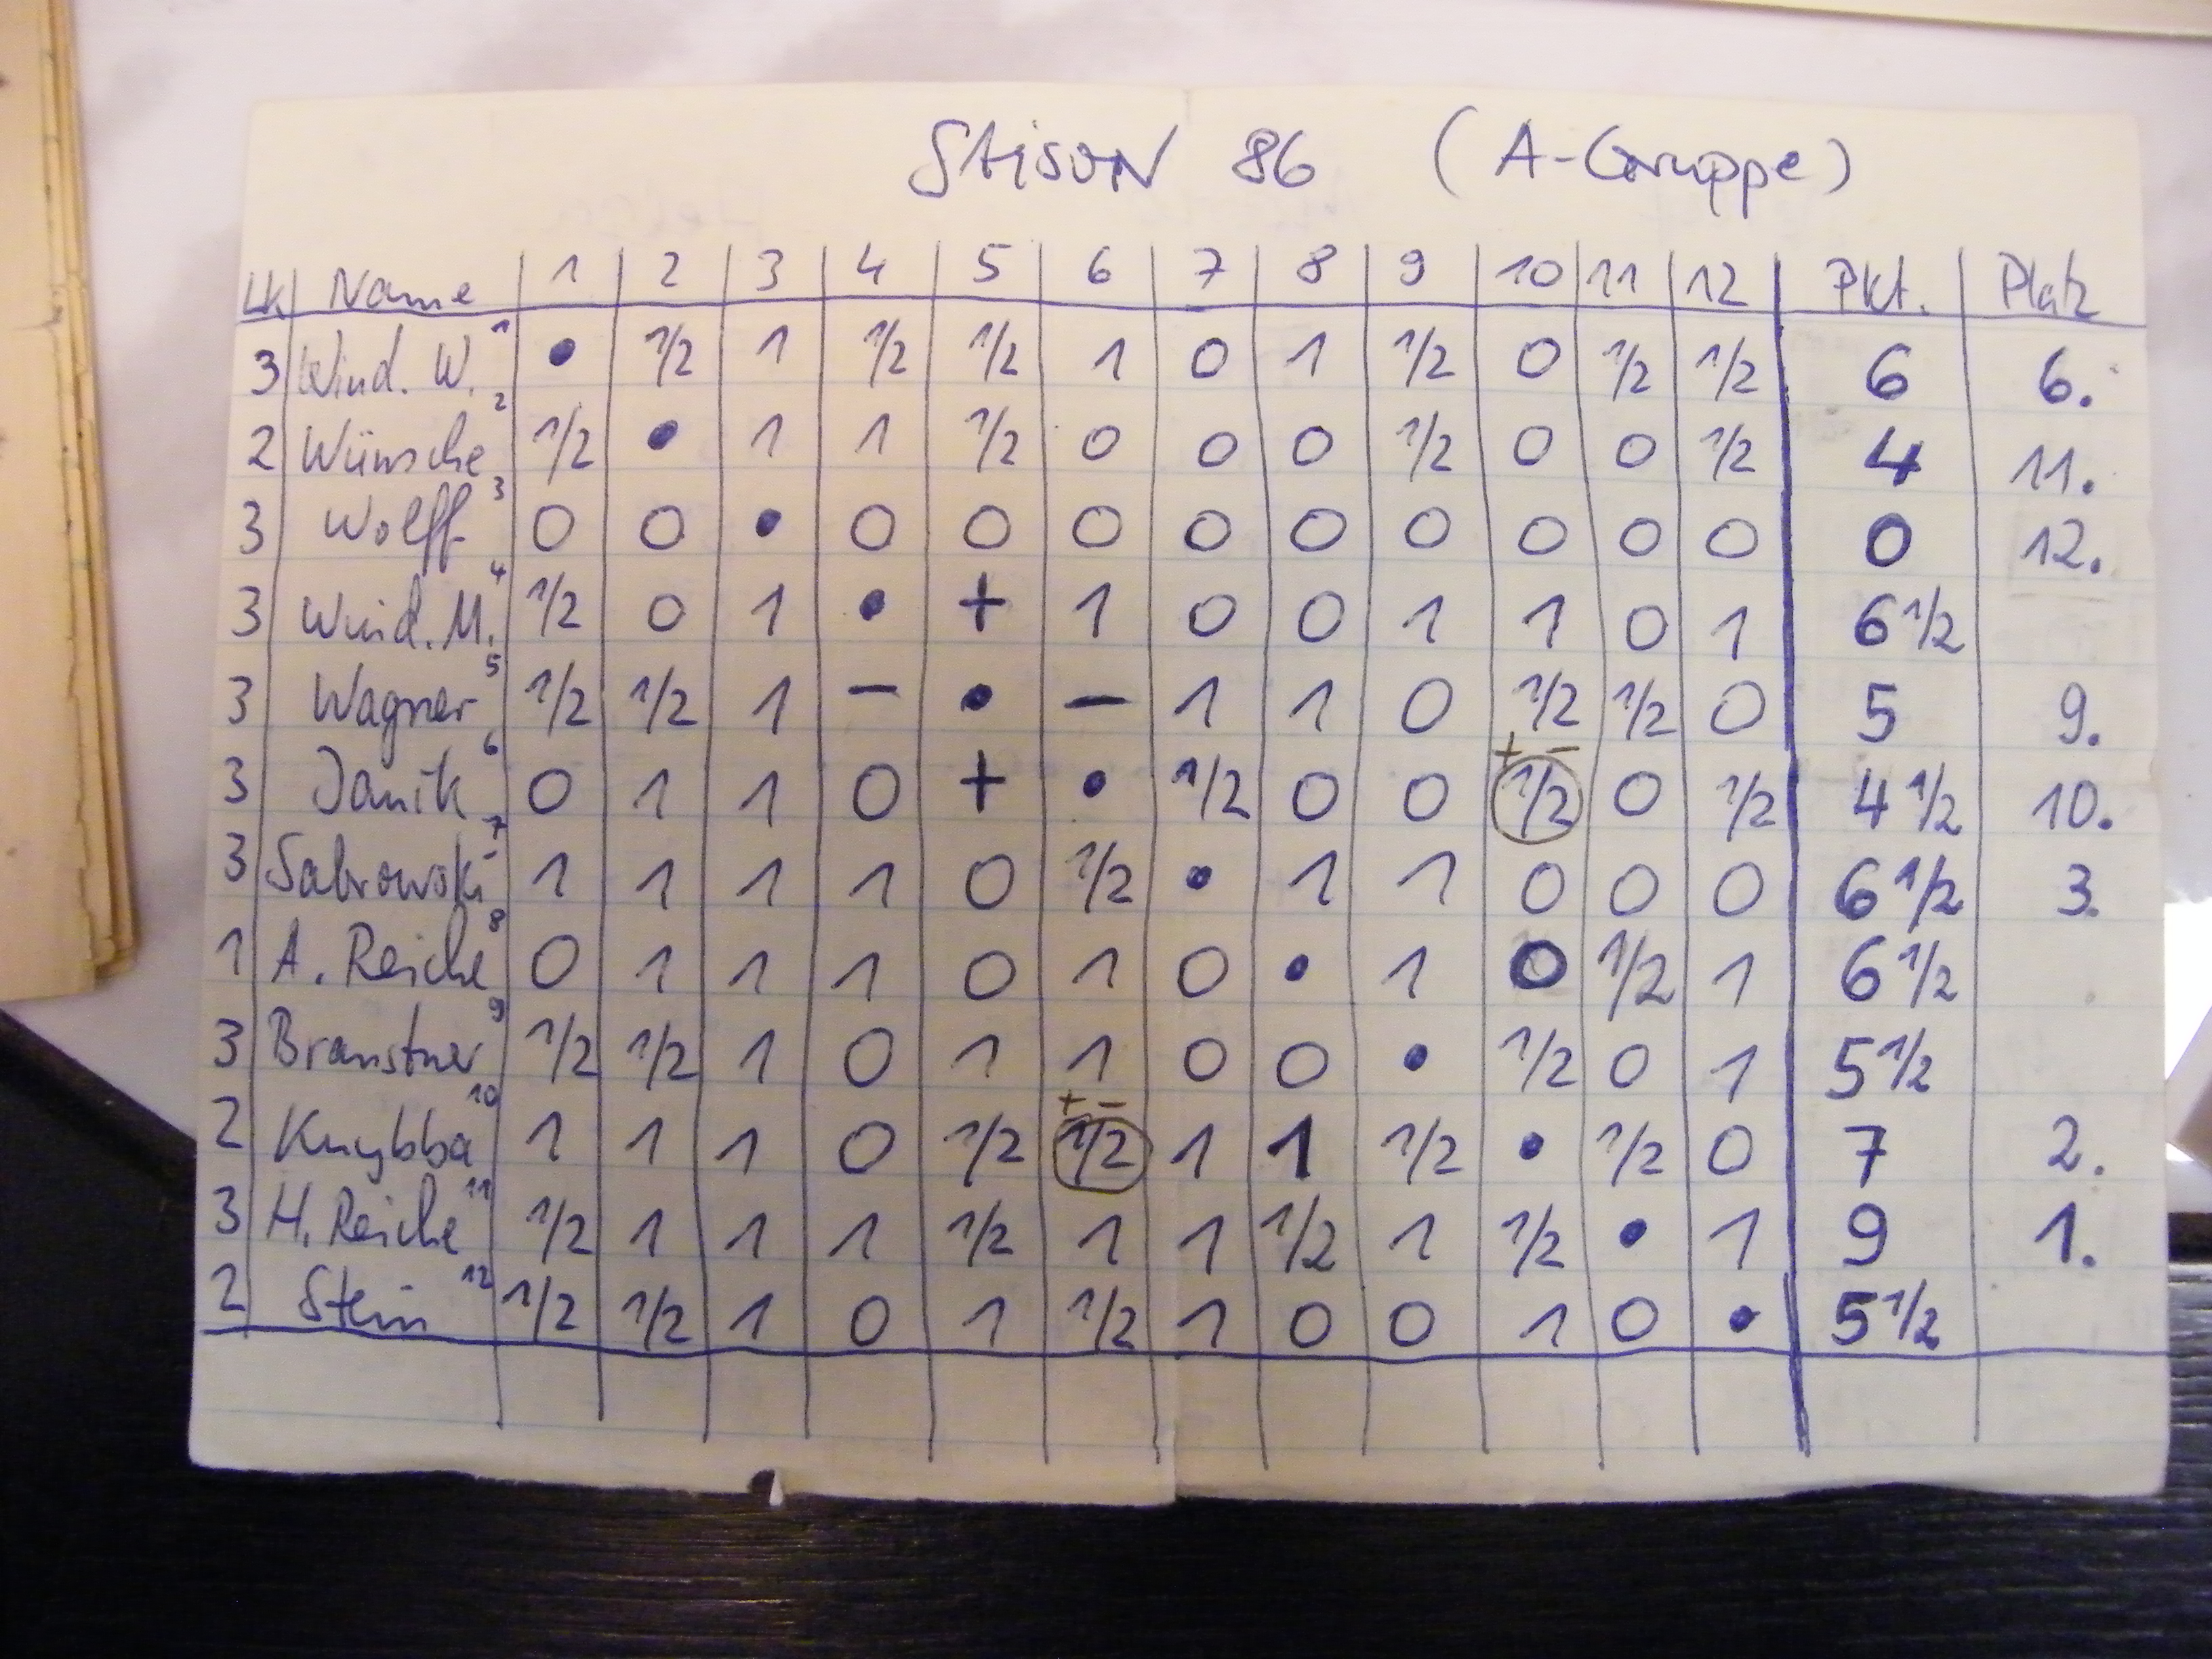 Saison 86 (A-Gruppe)
LK Name 1 2 3 4 5 6 7 8 9 10 11 12 Pkt. Platz
3 Wind. W. 1 • 1/2 1 1/2 1/2 1 0 1 1/2 0 1/2 1/2 6 6.
2 Wünsche 2 1/2 • 1 1 1/2 0 0 0 1/2 0 0 1/2 4 11.
3 Wolff 3 0 0 • 0 0 0 0 0 0 0 0 0 0 12.
3 Wind. M. 4 1/2 0 1 • + 1 0 0 1 1 0 1 6 1/2
3 Wagner 5 1/2 1/2 1 – • – 1 1 0 1/2 1/2 0 5 9.
+ –
3 Janik 6 0 1 1 0 + • 1/2 0 0 1/2 0 1/2 4 1/2 10.
3 Sabrowski 7 1 1 1 1 0 1/2 • 1 1 0 0 0 6 1/2 3.
1 A. Reiche 8 0 1 1 1 0 1 0 • 1 0 1/2 1 6 1/2
3 Branstner 9 1/2 1/2 1 0 1 1 0 0 • 1/2 0 1 5 1/2
+ –
2 Knybba 10 1 1 1 0 1/2 1/2 1 1 1/2 • 1/2 0 7 2.
3 H. Reiche 11 1/2 1 1 1 1/2 1 1 1/2 1 1/2 • 1 9 1.
2 Stein 12 1/2 1/2 1 0 1 1/2 1 0 0 1 0 • 5 1/2